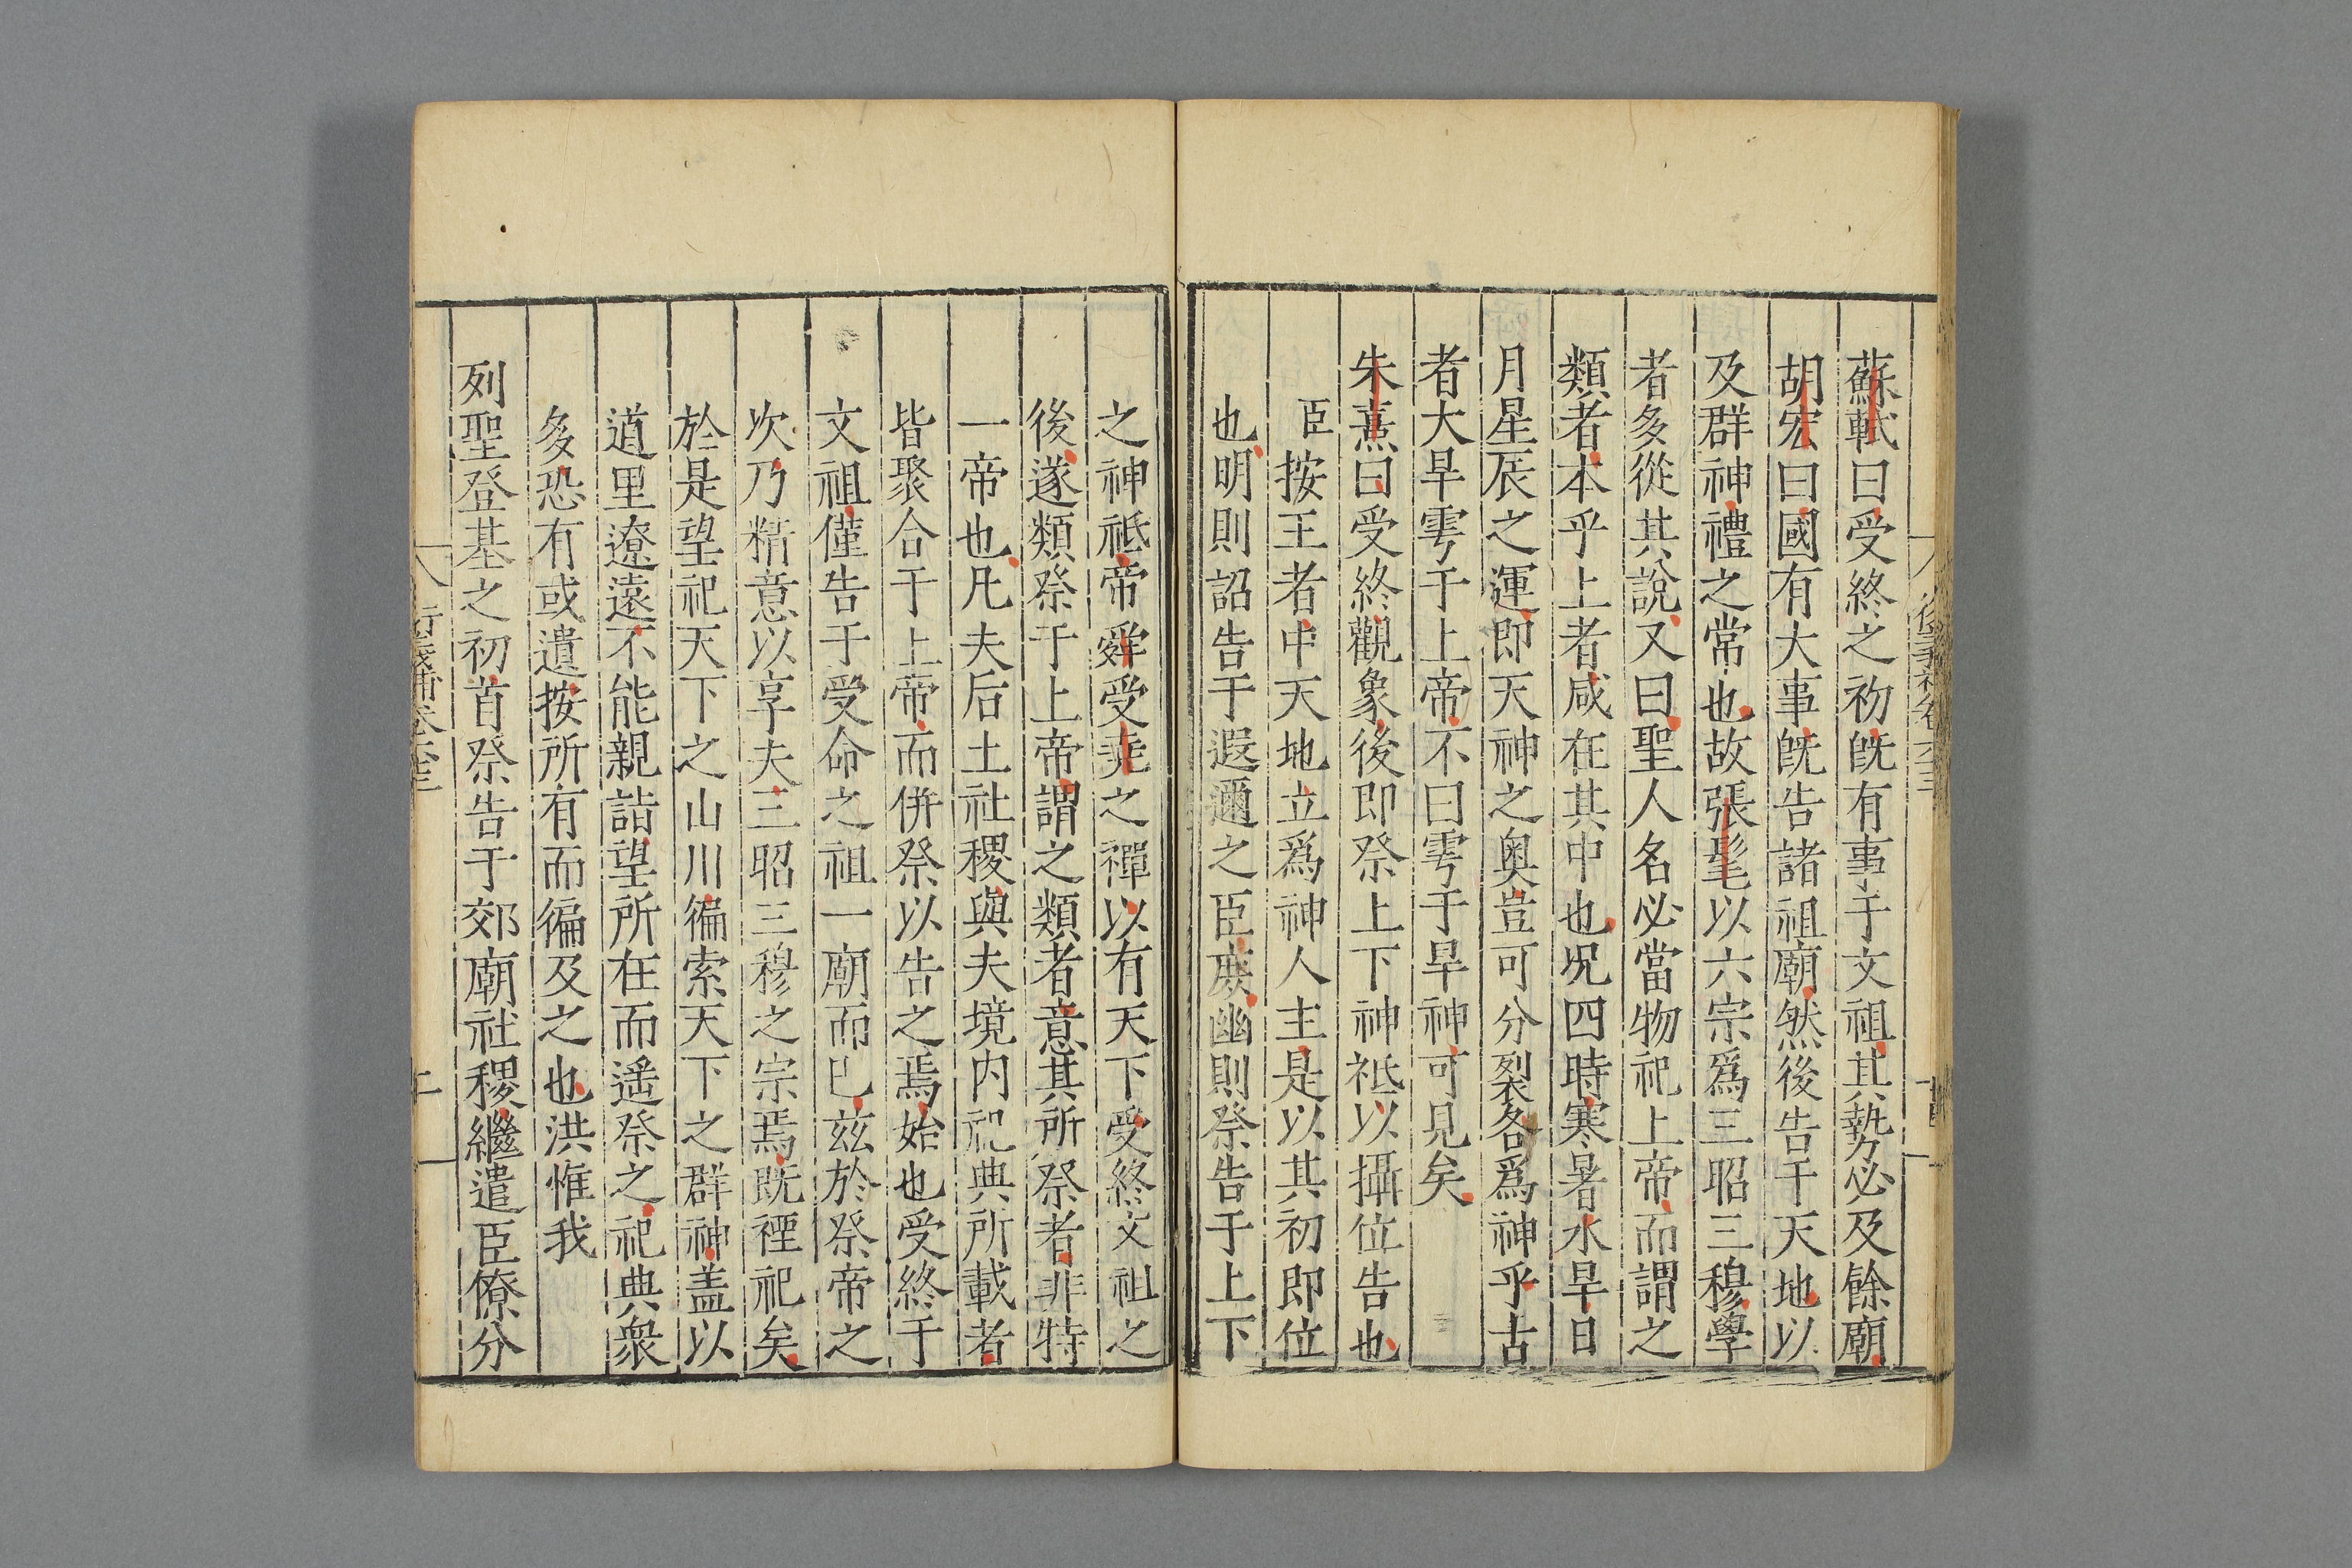 蘇軾曰受終之初旣有事于文祖其勢必及餘廟
胡宏曰國有大事旣告諸祖廟然後告于天地以
及群神禮之常也故張髦以六宗爲三昭三穆學
者多從其說又曰聖人名必當物祀上帝而謂之
類者本乎上者咸在其中也呪四時寒暑水旱日
月星辰之運即天神之奥豈可分裂各爲神乎古
者大旱雩于上帝不曰雩于旱神可見矣
朱熹曰受終觀象後即祭上下神祇以攝位告也
臣按王者中天地立爲神人主是以其初即位
也明則詔告于遐邇之臣庶幽則祭告于上下
之神祇帝舜受堯之禪以有天下受終文祖之
後遂類祭于上帝謂之類者意其所祭者非特
一帝也凡夫后土社稷與夫境内祀典所載者
皆聚合于上帝而併祭以告之焉始也受終于
文祖僅告于受命之祖一廟而已兹於祭帝之
次乃精意以享夫三昭三穆之宗焉既禋祀矣
於是望祀天下之山川徧索天下之群神盖以
道里遼遠不能親詣望所在而遥祭之祀典衆
多恐有或遺按所有而徧及之也洪惟我
列聖登基之初首祭告于郊廟社稷繼遣臣僚分